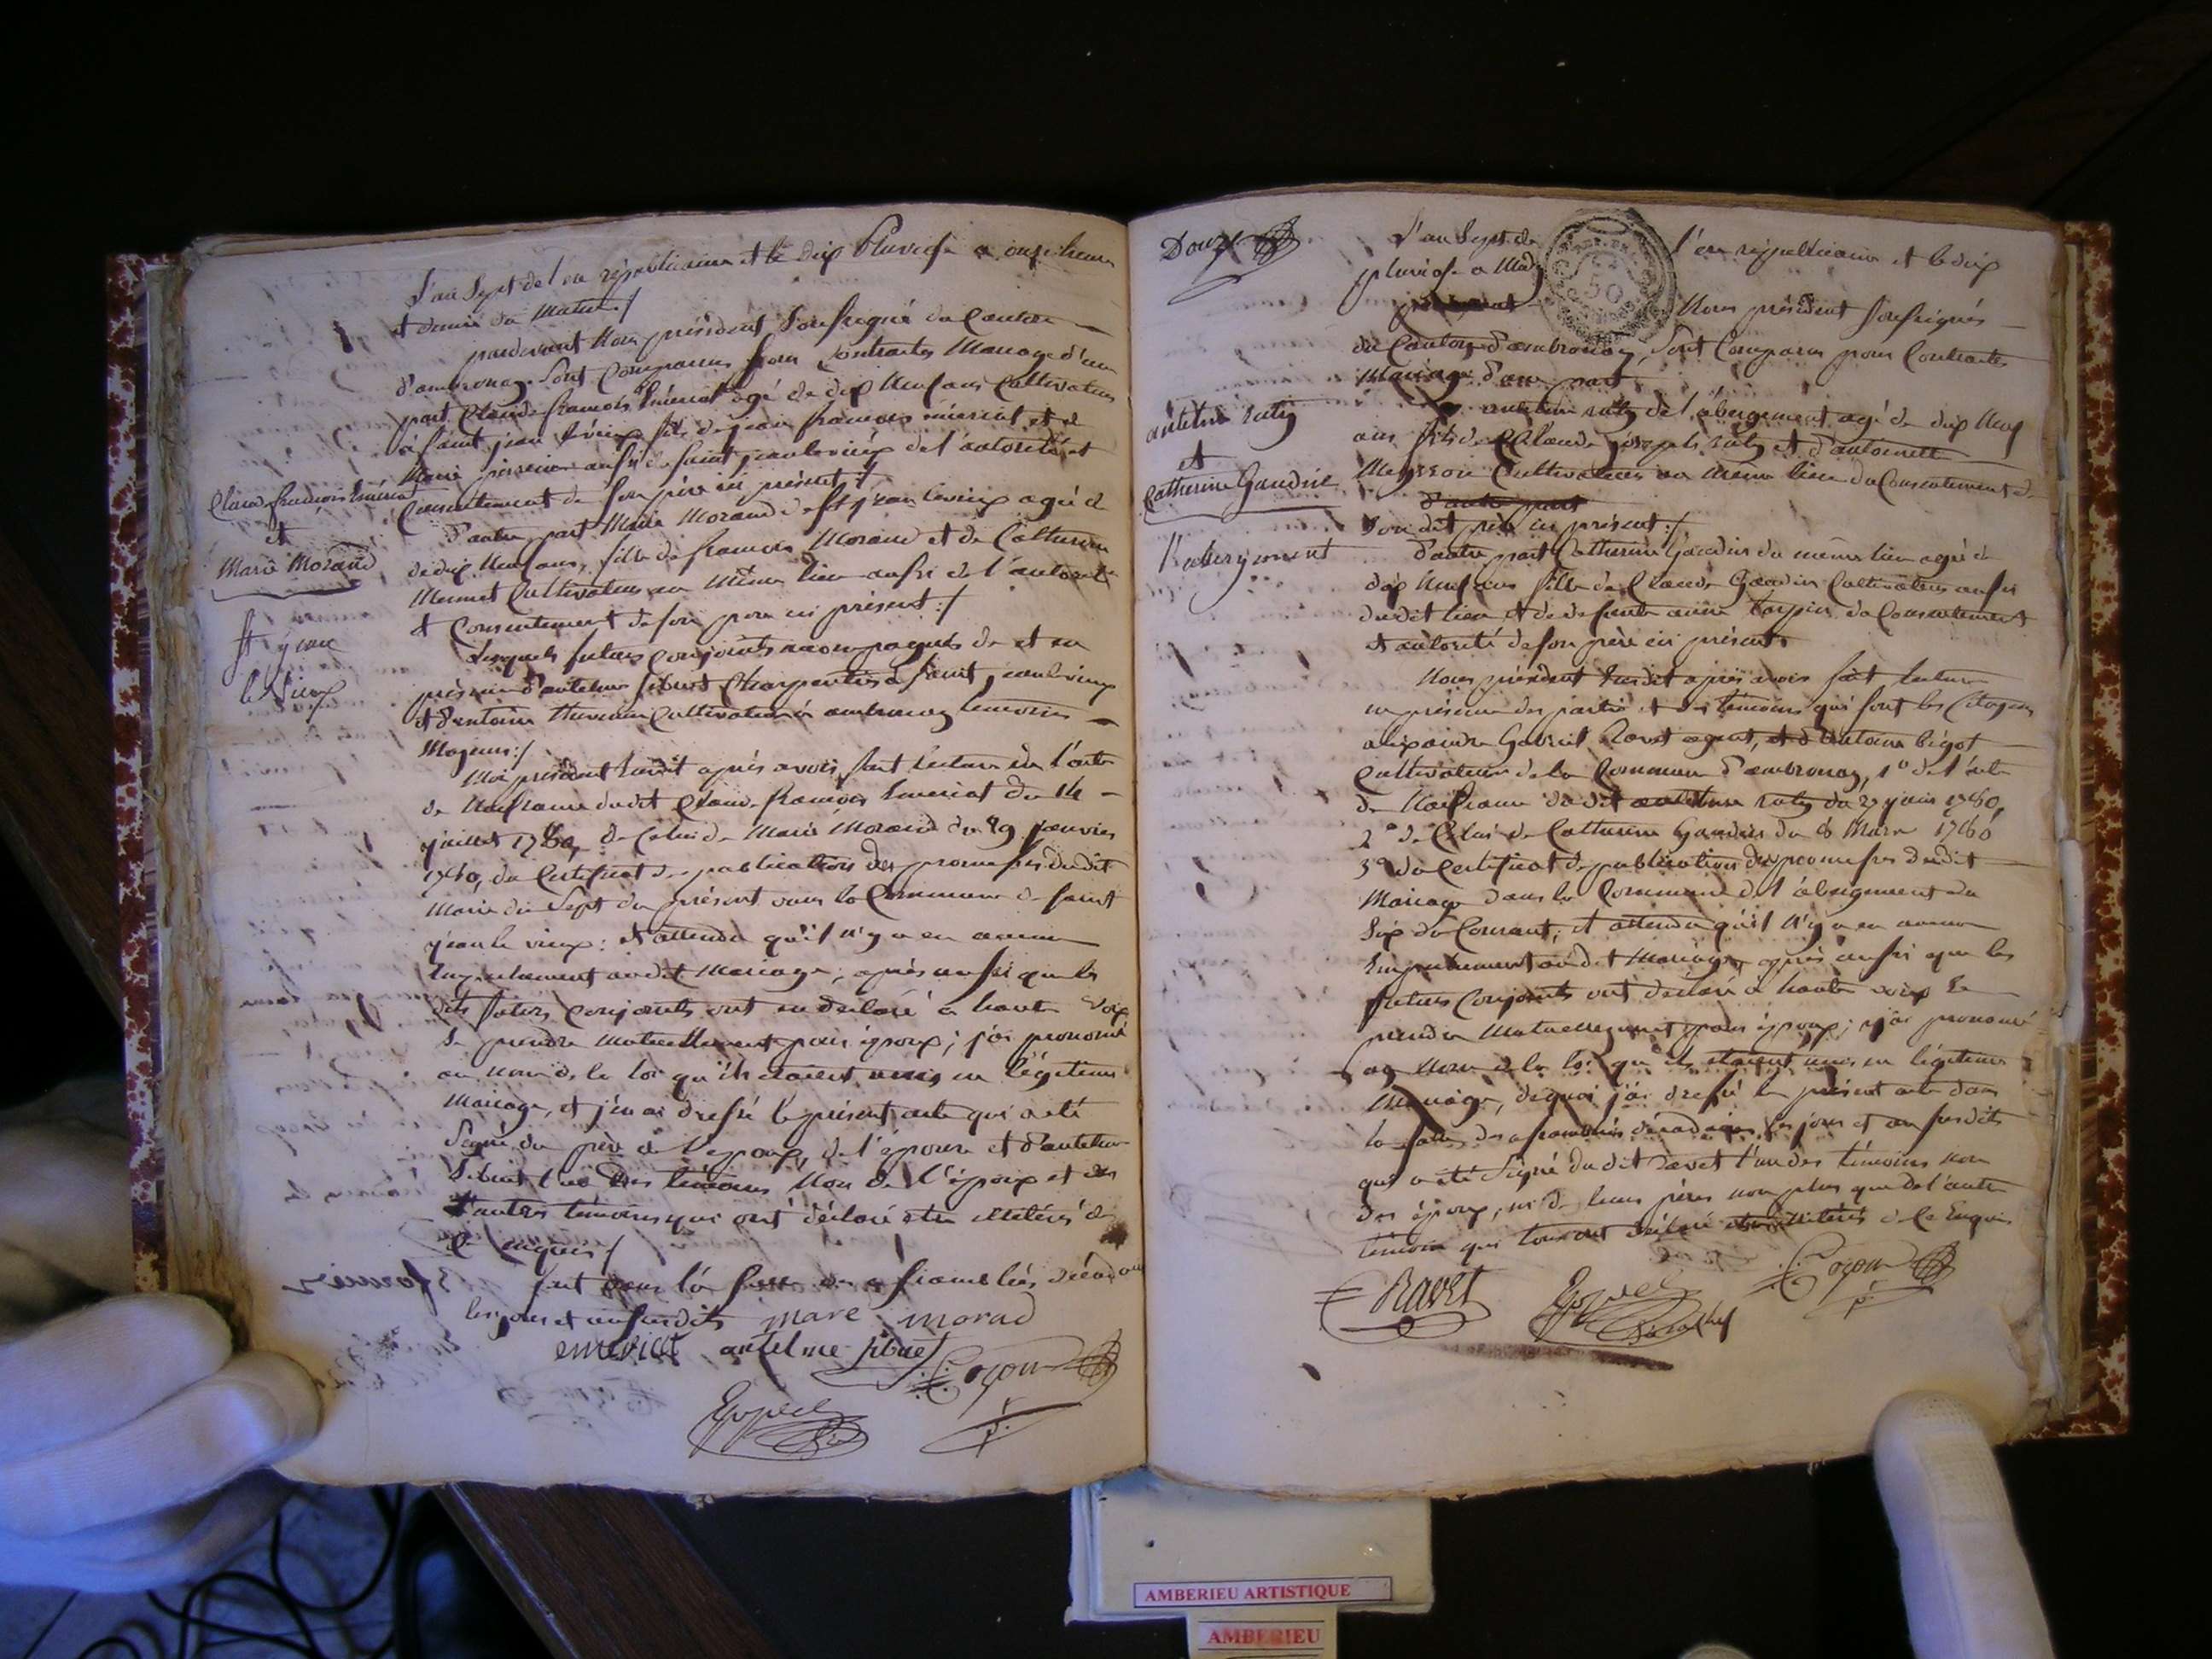 L'an Sept de l'ere républicaine et le dix Pluviose a onze heures
et demie du Matin ./.
pardevant Nous président Soussigné du Canton
d'ambronay. Sont Comparus pour Contracter Mariage d'une
part Claude françois Emeriat agé de dix Neuf ans Cultivateur
à saint jean le vieux fils de jean françois émeriat et de
Marie aussi de saint jean le vieux de l'autorité et
Consentement de son père ici présent ./.
Claude françois Emeriat
et
Marie Morand
St jean
le Vieux
d'autre part Marie Morand de St jean le vieux agée de
de dix Neuf ans, fille de françois Morand et de Catherine
Mermet Cultivateur au Même lieu aussi de l'autorité
et Consentement de son pere ici présent ./.
Lesquels futurs conjoints accompagnés de et en
présence d'antelme Sibuet Charpentier à saint jean le vieux
et d'antoine Cultivateur à ambronay témoins
Majeurs ./.
Moi président Susdit après avoir fait lecture de l'acte
de Naissance dudit Claude françois Emeriat du 14
juillet 1780, de Celui de Marie Morand du 29 janvier
1780, du Certificat de publication des promesses dudit
Mariage du Sept du présent dans la Commune de saint
jean le vieux : et attendu qu'il n'y a eu aucun
Empechement audit Mariage, après aussi que les
dits futurs Conjoints ont eu déclaré à haute Voix
Se prendre Mutuellement pour époux ; j'ai prononcé
au nom de la loi qu'ils étaient unis en légitime
Mariage, et j'en ai dressé le présent acte qui a été
Signé du père de l'epoux, de l'épouse et d'antelme
Sibuet l'un des témoins Non de l'époux et des
d'autres témoins qui ont déclaré etre illétérés de
ce Enquis ./.
fait dans la Salle des assemblées décadaires
les jour et an susdits mare morad
emeriat antelme sibuet Cozon
Douze
L'an Sept de l'ere républicaine et le dix
pluviose a Midy
Nous président Soussignés
du Canton d'ambronay, Sont Comparus pour Contracter
Mariage d'une part
antelme ruty
et
Catherine Gaudin
l'abergement
antelme ruty de l'abergement agé de dix Neuf
ans fils de Claude joseph ruty et d'antoinette
Cultivateur au même lieu du Consentement de
d'autre part
Son dit père ici présent ./.
d'autre part Catherine Gaudin du même lieu agée de
dix Neuf ans fille de Claude Gaudin Cultivateur aussi
dudit lieu et de defunte anne du Consentement
et autorité de son père ici présent
Nous président Susdit après avoir fait lecture
en présence des parties et des témoins qui sont les Citoyens
alexandre Gabriel Ravet agent, et d'antoine bigot
Cultivateur de la Commune d'ambronay, 1° de l'acte
de Naissance dudit antelme ruty du 27 juin 1780,
2° de Celui de Catherine Gaudin du 8 Mars 1780
3° du Certificat de publication des promesses dudit
Mariage dans la Commune de l'abergement du
Six du Courant ; et attendu qu'il n'y a eu aucun
Empechement audit Mariage, après aussi que les
futurs Conjoints ont déclaré à haute voix se
prendre Mutuellement pour époux ; j'ai prononcé
au Nom de la loi qu'ils étaient unis en légitime
Mariage, de quoi j'ai dressé le présent acte dans
la salle des assemblées décadaires, les jour et an susdits
qui a été Signé dudit Ravet l'un des témoins non
des époux, ni de leurs pères non plus que de l'autre
témoin qui tous ont déclaré etre illétérés de ce Enquis
Ravet Cozon
50
AMBERIEU ARTISTIQUE
AMBERIEU